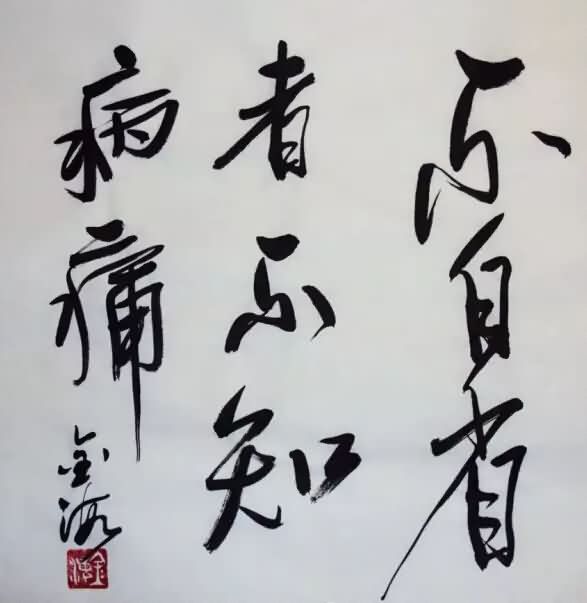 不自省
者不知
病痛
金海